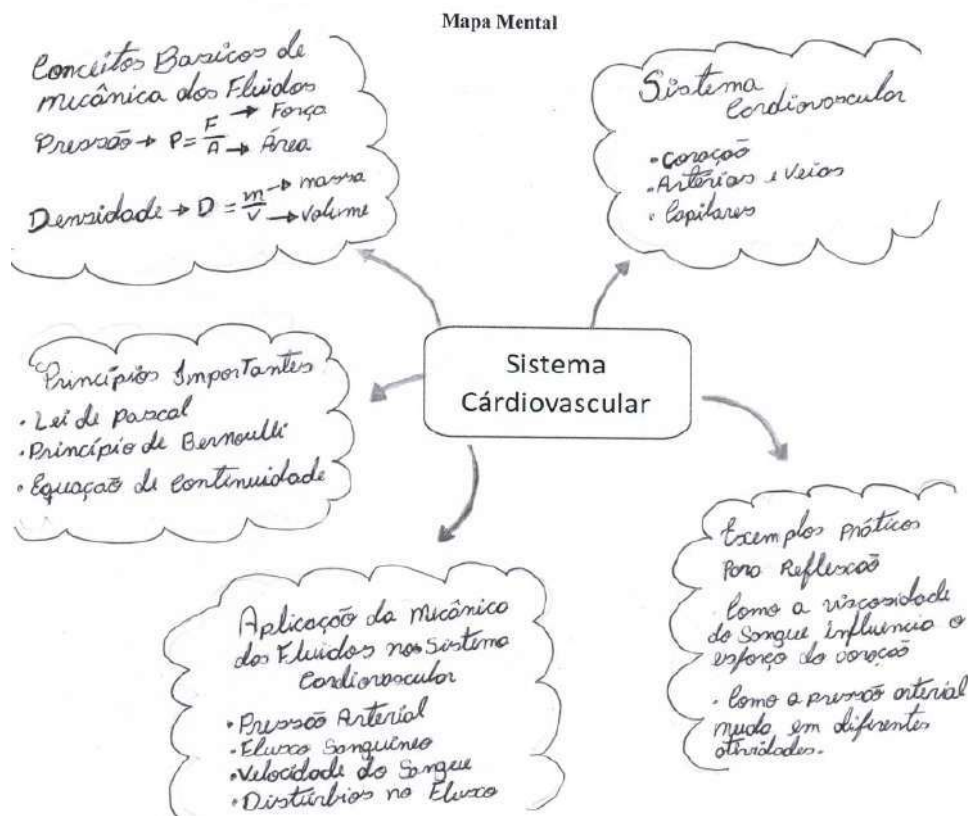 Mapa Mental
Conceitos Basicos de
mecânica dos Fluidos
Pressão → P = F/A → Força
→ Área
Densidade → D = m/v → massa
→ Volume
Sistema
Cardiovascular
• Coração
• Artérias e Veias
• Capilares
Sistema
Cárdiovascular
Princípios Importantes
• Lei de Pascal
• Princípio de Bernoulli
• Equação de Continuidade
Aplicação da Mecânica
dos Fluidos nos Sistema
Cardiovascular
• Pressão Arterial
• Fluxo Sanguíneo
• Velocidade do Sangue
• Distúrbios no Fluxo
Exemplos Práticos
Para Reflexão
. Como a viscosidade
do Sangue influencia o
esforço do coração
. Como a pressão arterial
muda em diferentes
atividades.